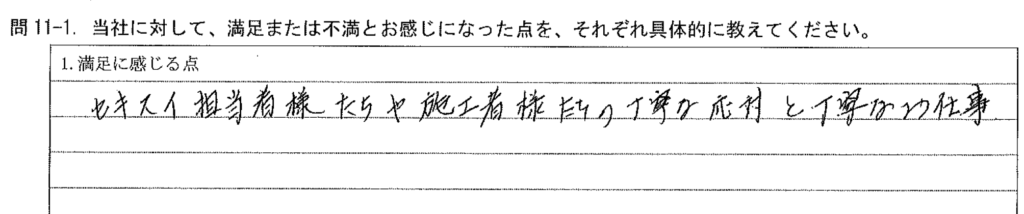 問 11-1. 当社に対して、満足または不満とお感じになった点を、それぞれ具体的に教えてください。
1. 満足に感じる点
セキスイ担当者様たちや施工者様たちの丁寧な応対と丁寧なお仕事